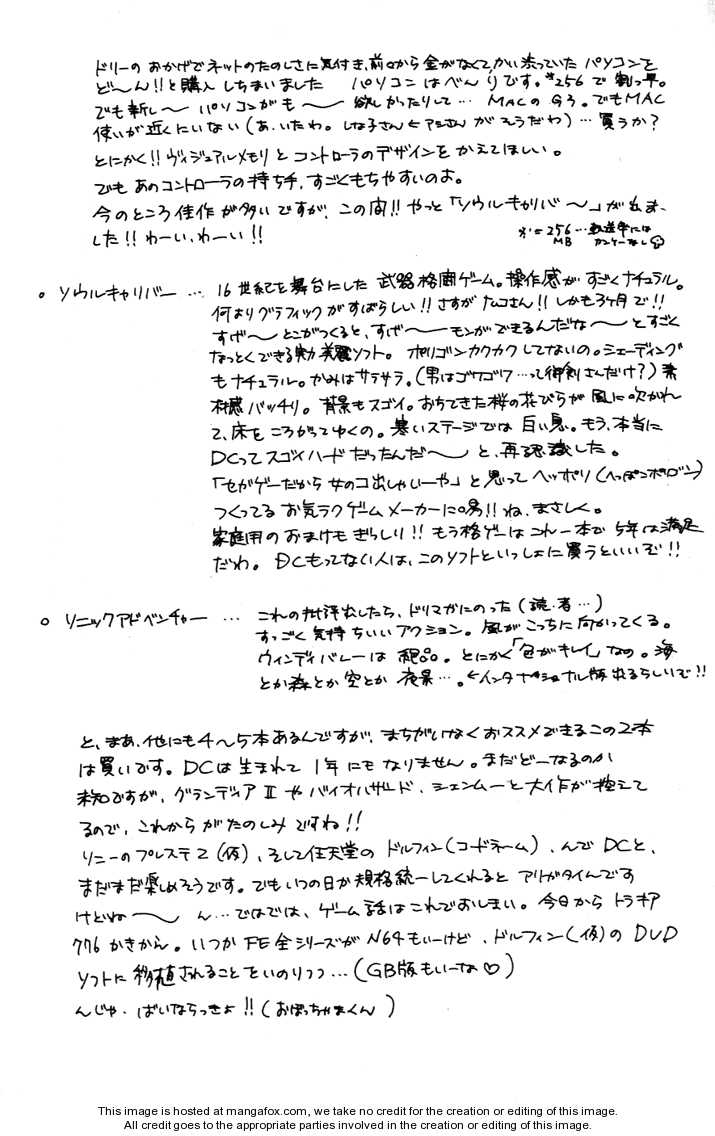 ドリーの おかげでネットのたのしさに気付き、前々から金がなくて、かい渋っていた パソコンを
ど〜ん!!と購入 しちまいました パソコン はべんりです。*256 で 割っ早。
でも新し〜 パソコンがも〜 欲しかったりして… MACの G3。でもMAC
使いが近くにいない(あ、いたわ。しな子さん ← アニさん が そうだわ)…買うか?
とにかく!! ヴィジュアルメモリ と コントローラのデザインを かえてほしい。
でも あのコントローラの持ち手、すごくもちやすいのよ。
今のところ佳作 が多い ですが、この間!! やっと「ソウルキャリバ〜」が出ま
した!! わーい、わーい!!
*=256…転送率には
MB カンケーなし
。ソウルキャリバー … 16世紀を舞台にした 武器格闘ゲーム。操作感が すごくナチュラル。
何よりグラフィックがすばらしい!! さすが ナムコさん!! しかも3ヶ月で!!
すげ〜 とこがつくると、すげ〜 モンができるんだな〜 とすごく
なっとくできる 美麗ソフト。 ポリゴンカクカク してないの。シェーディング
もナチュラル。かみはサラサラ。(男はゴワゴワ…って御剣さんだけ?) 素
材感 バッチリ。背景もスゴイ。おちてきた桜の花びらが 風に吹かれ
て、床を ころがってゆくの。寒いステージでは 白い息。もう、本当に
DCってスゴイハード だったんだ〜 と、再認識した。
「セガゲーだから 女のコ出しゃいーや」と思って ヘッポリ(へっぽこポリゴン)
つくってる お気ラクゲームメーカーに喝!! ね、まさしく。
家庭用の おまけも ぎっしり!! もう格ゲーは これ一本で 5年は満足
だわ。DCもってない人は、このソフトといっしょに買うといいぞ!!
。ソニックアドベンチャー … これの批評出したら、ドリマガにのった(読・者…)
すっごく気持ちいいアクション。風がこっちに向かってくる。
ウィンディバレーは 絶品。とにかく「色がキレイ」なの。海
とか森とか空とか 夜景…。←インタナショナル版出るらしいで!!
と、まあ、他にも4〜5本あるんですが、まちがいなくおススメできるこの2本
は買いです。DCは生まれて 1年にもなりません。まだどーなるのか
未知ですが、グランディアⅡ や バイオハザード、シェンムーと大作が控えて
るので、これから がたのしみ ですね!!
ソニーのプレステ2(仮)、そして任天堂の ドルフィン(コードネーム)、んで DCと、
まだまだ楽しめそうです。でもいつの日か規格統一してくれると アリガタイんです
けどね〜 ん…ではでは、ゲーム話はこれでおしまい。今日から トラキア
776 かきから。いつか FE全シリーズが N64もいーけど、ドルフィン(仮)の DVD
ソフトに 移植されることをいのりつつ…(GB版もいーな♡)
んじゃ、ばいならっきょ!!(おぼっちゃまくん)
This image is hosted at mangafox.com, we take no credit for the creation or editing of this image.
All credit goes to the appropriate parties involved in the creation or editing of this image.